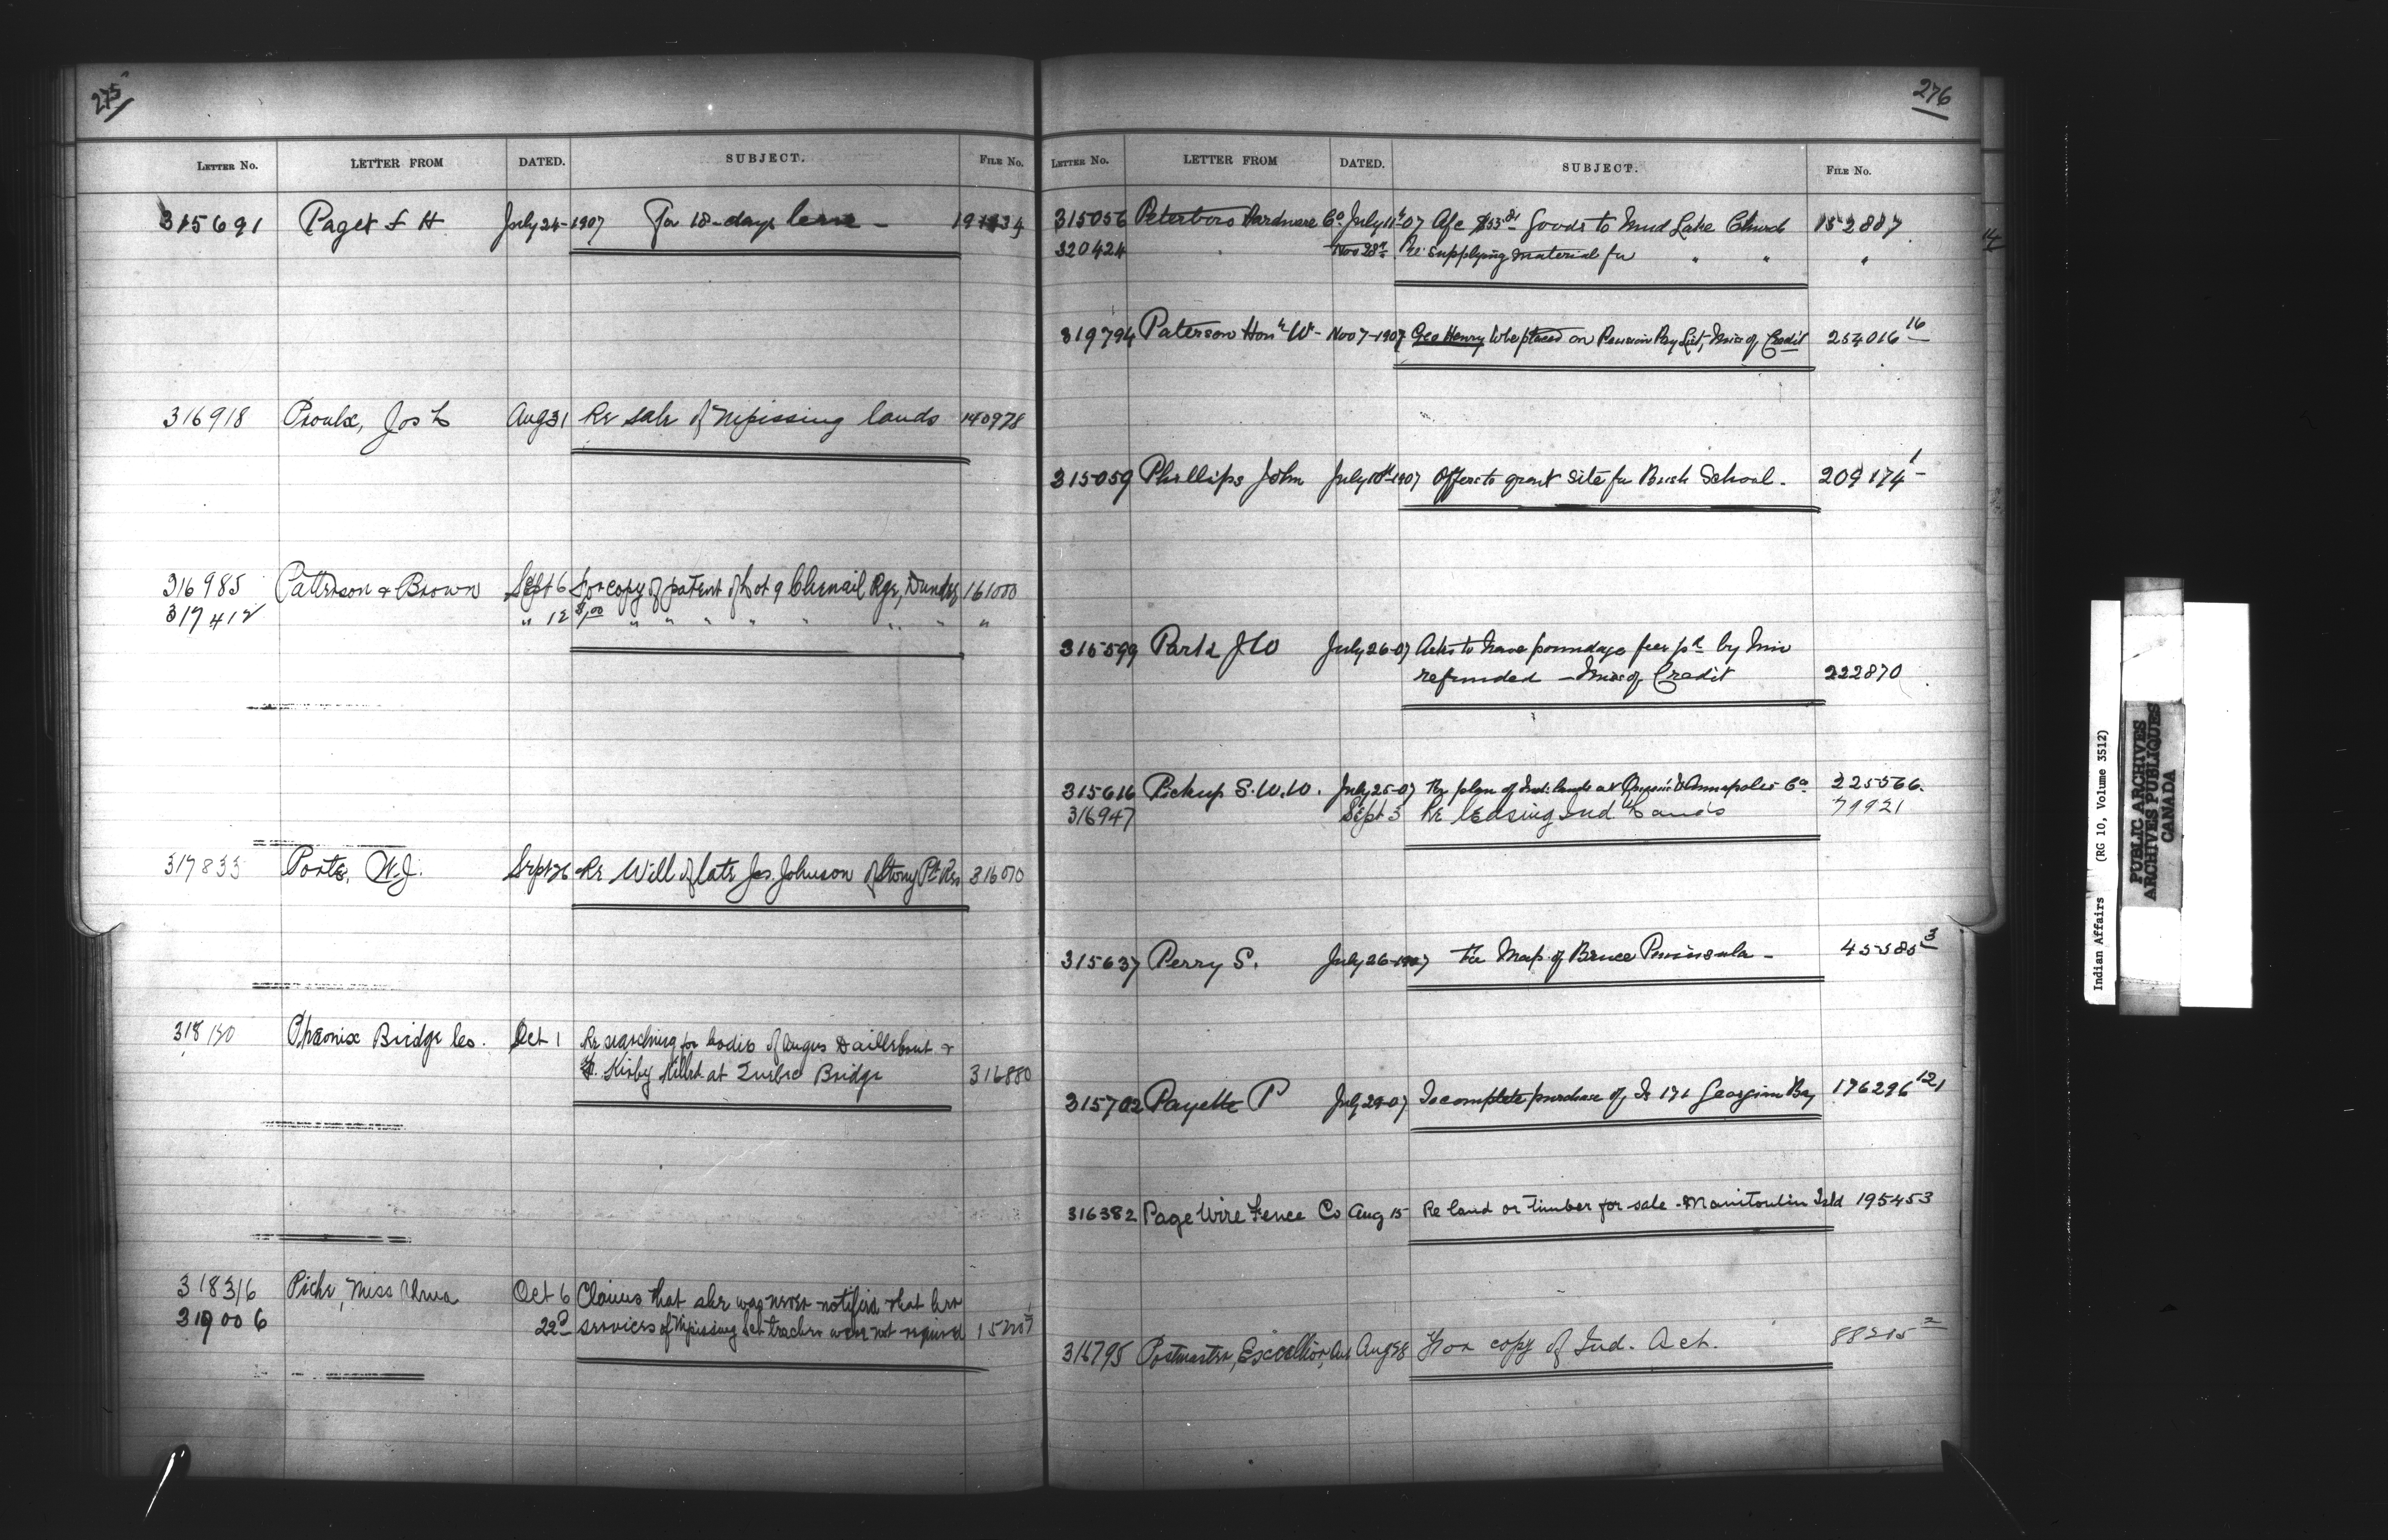 275
LETTER NO. LETTER FROM DATED. SUBJECT. FILE NO.
315691 Paget F H July 24-1907 For 18-days leave -
316918 Proulx, Jos L Aug 31 Re sale of Nipissing lands 140978
316985 Patterson & Brown Sept 6 For copy of patent of Lot 9 Chenail Rge, Dundee 161000
317412 " 12 $1.00 " " " " " " " "
317833 W.J. Sept 26 Re Will of late Jas. Johnson of Stony Pt Res 316070
318130 Phoenix Bridge Co. Oct 1 Re searching for bodies of Angus &
Kirby killed at Quebec Bridge 316880
318316 Piche, Miss Oct 6 Claims that she was never notified that her
319006 22d services of Nipissing Sch teacher were not required
276
LETTER NO. LETTER FROM DATED. SUBJECT. FILE NO.
315056 Peterboro Hardware Co July 11th-07 A/c $53.81 Goods to Mud Lake Church 152887
320424 " Nov 28th Re supplying material for " " "
319794 Paterson Hon W- Nov 7-1907 Geo Henry to be placed on Pension Pay List, Miss of Credit 254016 16
315059 Phillips John July 1907 Offers to grant site for Bush School - 209174 1
315599 July 26-07 Asks to have poundage fees pd by him
refunded - Miss of Credit 222870
315616 Pickup S.W.W. July 25-07 For plan of Ind: lands at Annapolis Co. 225566.
316947 Sept 3 Re leasing Ind Lands 79921
315637 Perry S. July 26-1907 For Map of Bruce Peninsula - 45585 3
315702 Payette P July 29-07 To complete purchase of Is 171 Georgian Bay 176296 121
316382 Page Wire Fence Co Aug 15 Re land or timber for sale - Manitoulin Isld 195453
316795 Postmaster, Excelsior, Aug 28 For copy of Ind. Act. 88215 2
Indian Affairs (RG 10, Volume 3512)
PUBLIC ARCHIVES
ARCHIVES PUBLIQUES
CANADA